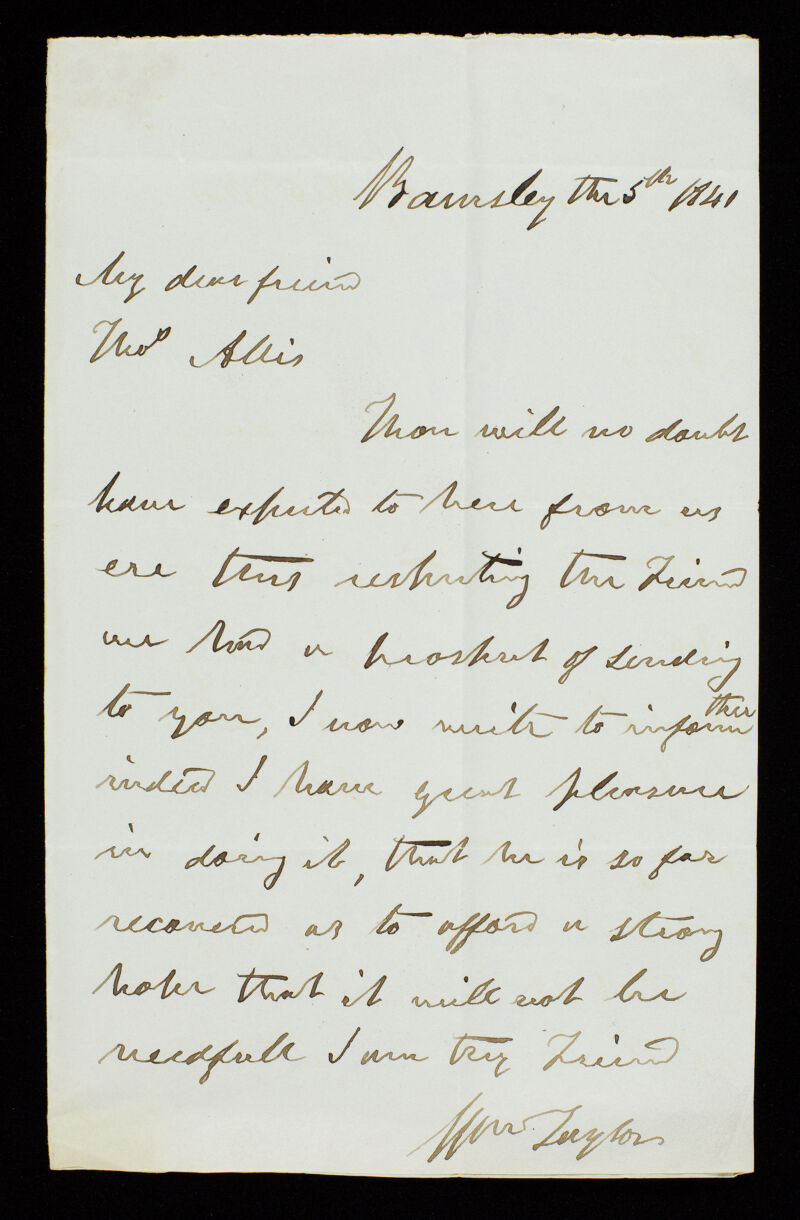 Barnsley the 5th 1841
My dear friend
Thos Allis
Thou will no doubt
have expected to hear from us
ere this respecting the Friend
we had a prospect of sending
to you, I now write to inform thee
indeed I have great pleasure
in doing it, that he is so far
recovered as to afford a strong
hope that it will not be
needfull I am thy Friend
Wm Taylor